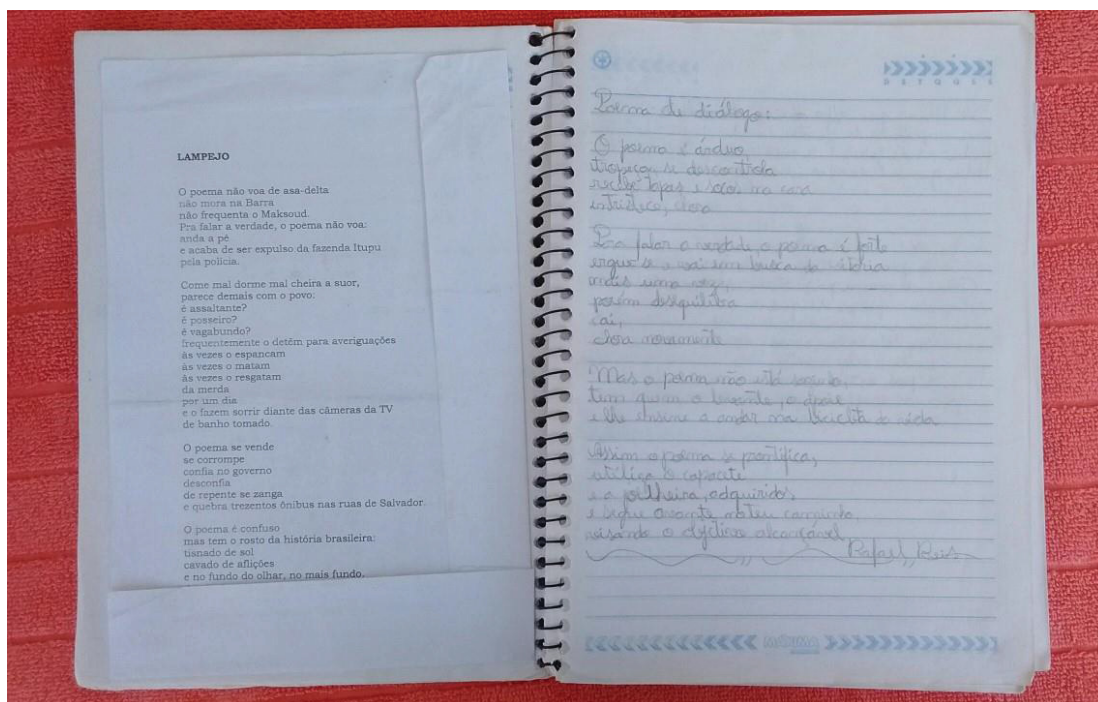 LAMPEJO
O poema não voa de asa-delta
não mora na Barra
não frequenta o Maksoud.
Pra falar a verdade, o poema não voa:
anda a pé
e acaba de ser expulso da fazenda Itupu
pela polícia.
Come mal dorme mal cheira a suor,
parece demais com o povo:
é assaltante?
é posseiro?
é vagabundo?
frequentemente o detêm para averiguações
às vezes o espancam
às vezes o matam
às vezes o resgatam
da merda
por um dia
e o fazem sorrir diante das câmeras da TV
de banho tomado.
O poema se vende
se corrompe
confia no governo
desconfia
de repente se zanga
e quebra trezentos ônibus nas ruas de Salvador.
O poema é confuso
mas tem o rosto da história brasileira:
tisnado de sol
cavado de aflições
e no fundo do olhar, no mais fundo,
Poema de diálogo:
O poema é árduo
tropeça, se descontrola
recebe tapas e socos na cara
entristece, chora
Pra falar a verdade, o poema é forte
ergue-se e sai em busca da vitória
mais uma vez,
porém desequilibra
cai,
chora novamente
Mas o poema não está sozinho,
tem quem o levante, o apoie
e lhe ensine a andar na bicicleta da vida
Assim o poema se prontifica,
utiliza o capacete
e a joelheira, adquiridos,
e segue avante no teu caminho
visando o objetivo alcançável
Rafael Reis